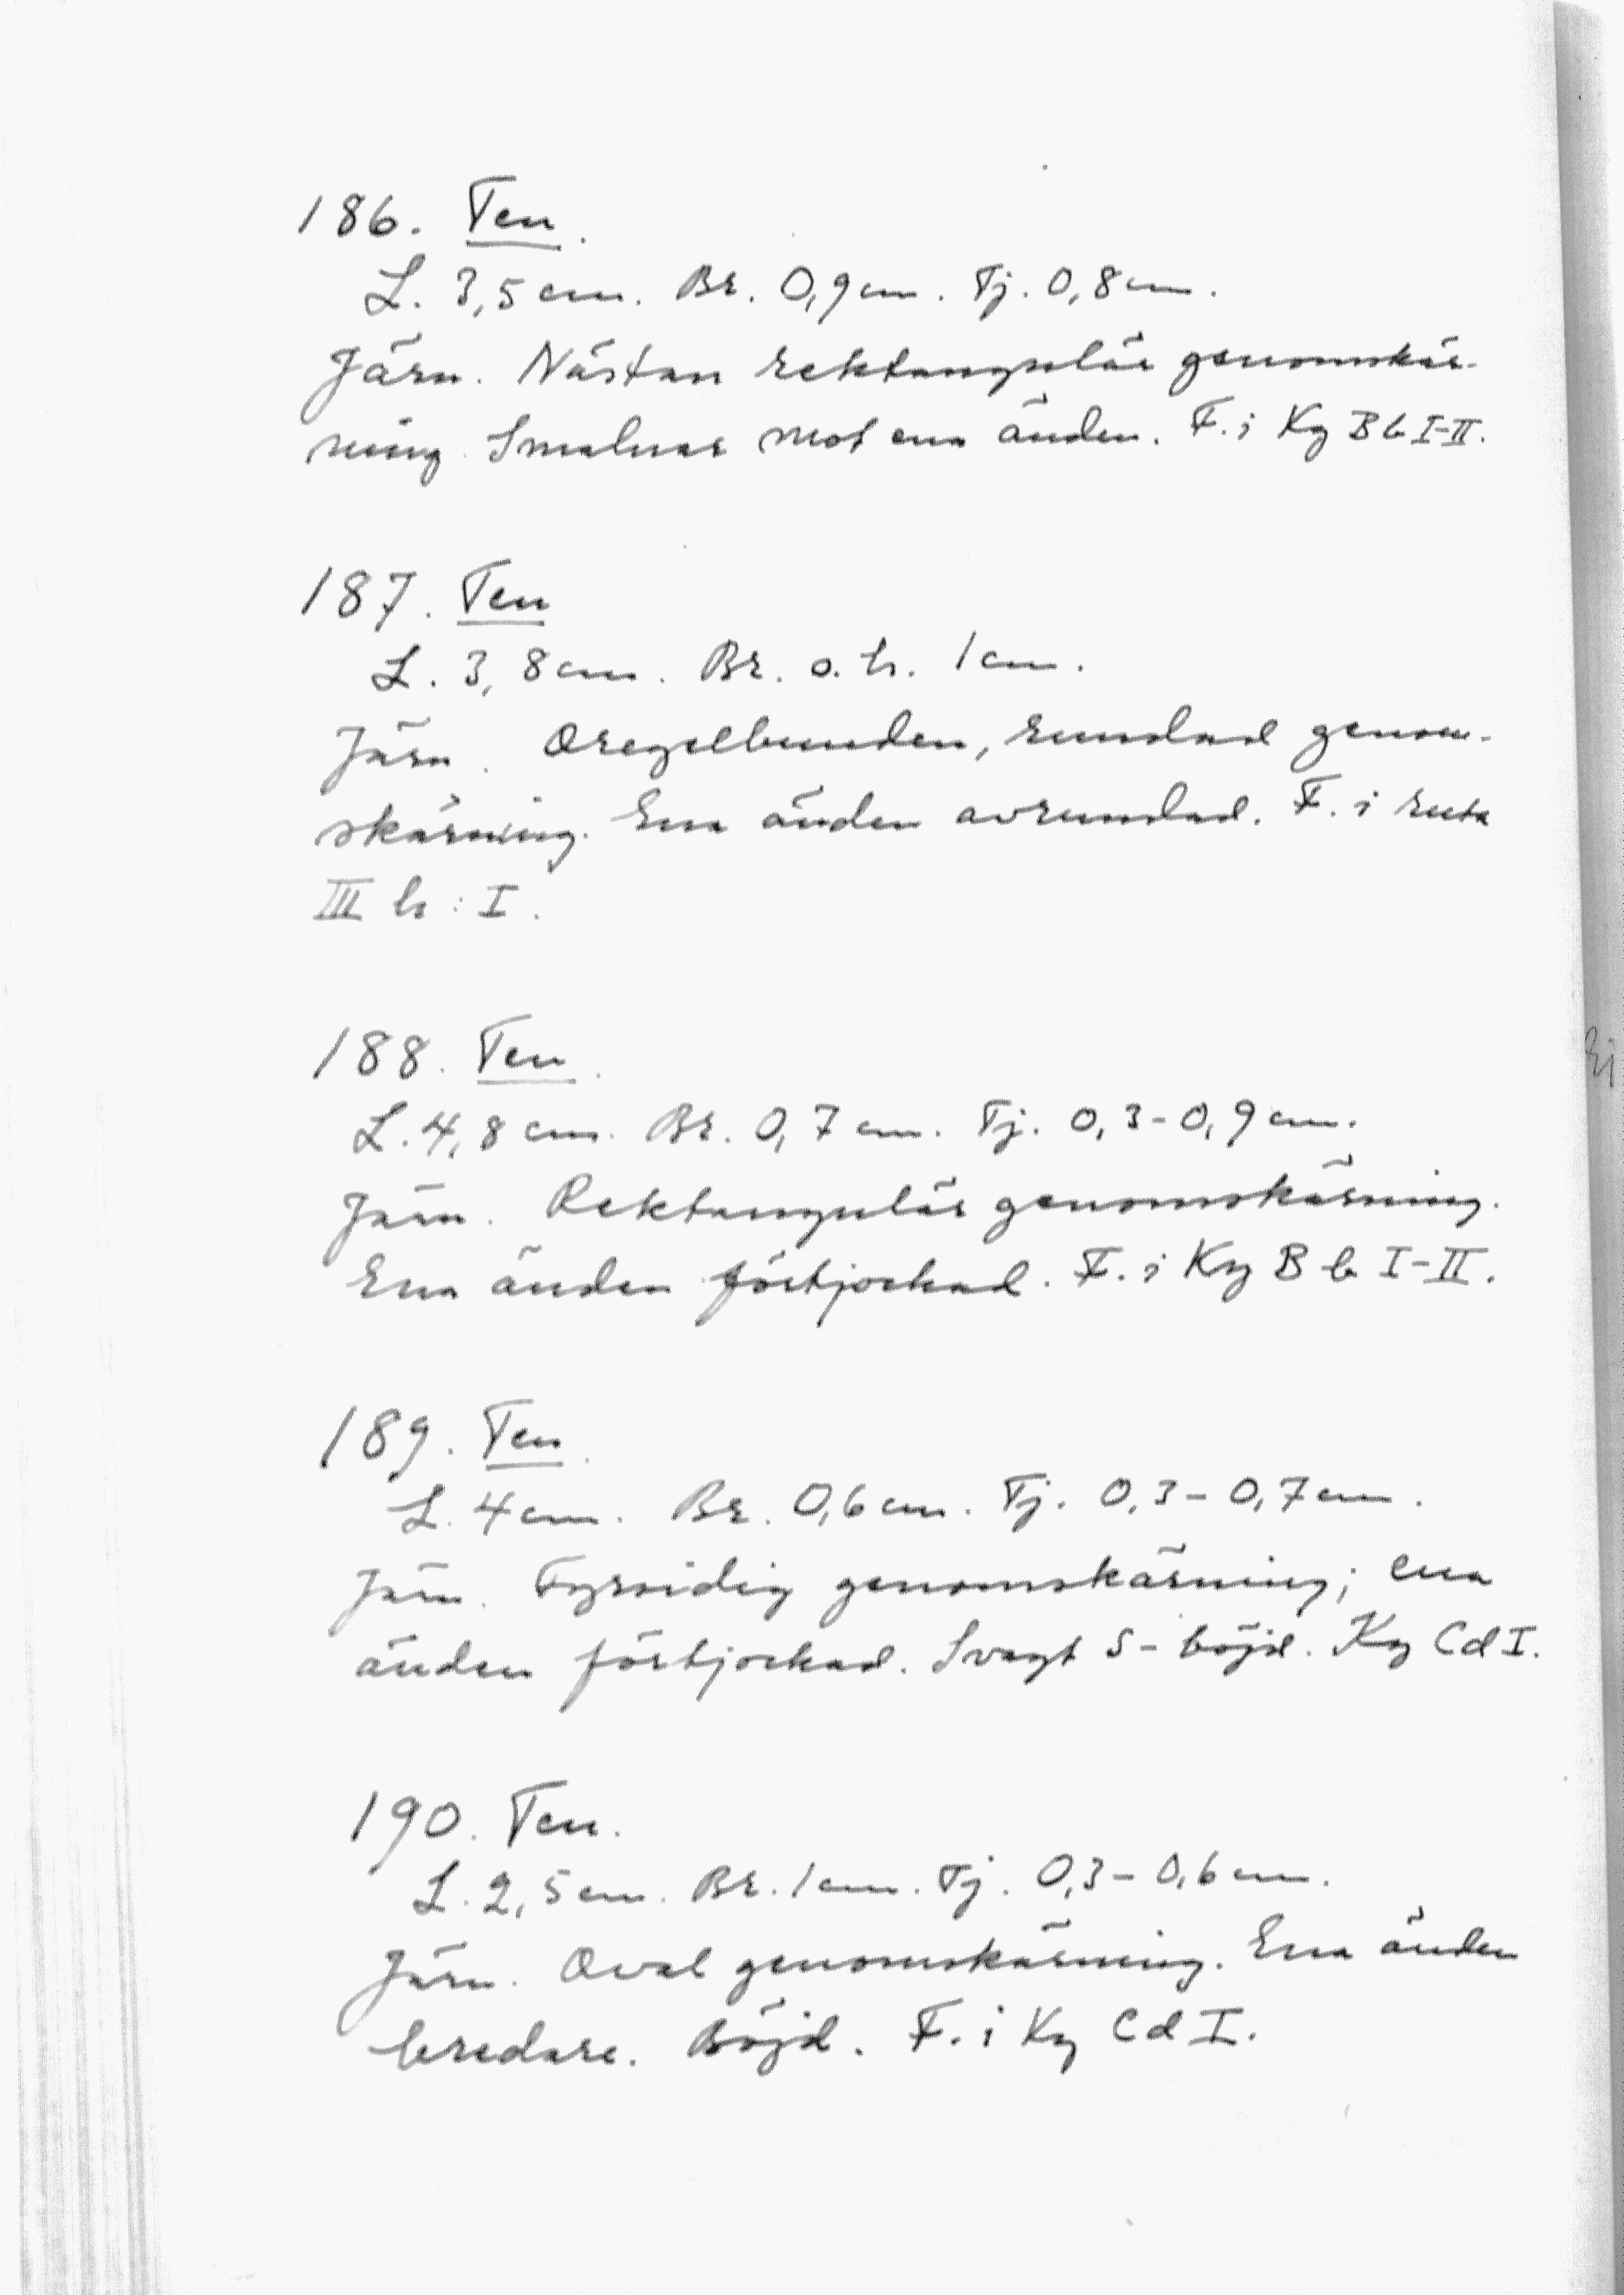 186. Ten.
L. 3,5 cm. Br. 0,9 cm. Tj. 0,8 cm.
Järn. Nästan rektangulär genomskär-
ning. Smalnar mot ena änden. F. i Kg B b I-II.
187. Ten
L. 3,8 cm. Br. o. h. 1 cm.
Järn. Oregelbunden, rundad genom-
skärning. Ena änden avrundad. F. i ruta
III h : I.
188. Ten.
L. 4,8 cm. Br. 0,7 cm. Tj. 0,3-0,9 cm.
Järn. Rektangulär genomskärning.
Ena änden förtjockad. F. i Kg B b I-II.
189. Ten.
L. 4 cm. Br. 0,6 cm. Tj. 0,3-0,7 cm.
Järn. Fyrsidig genomskärning; ena
änden förtjockad. Svagt S-böjd. Kg Cd I.
190. Ten.
L. 2,5 cm. Br. 1 cm. Tj. 0,3-0,6 cm.
Järn. Oval genomskärning. Ena änden
bredare. Böjd. F. i Kg Cd I.